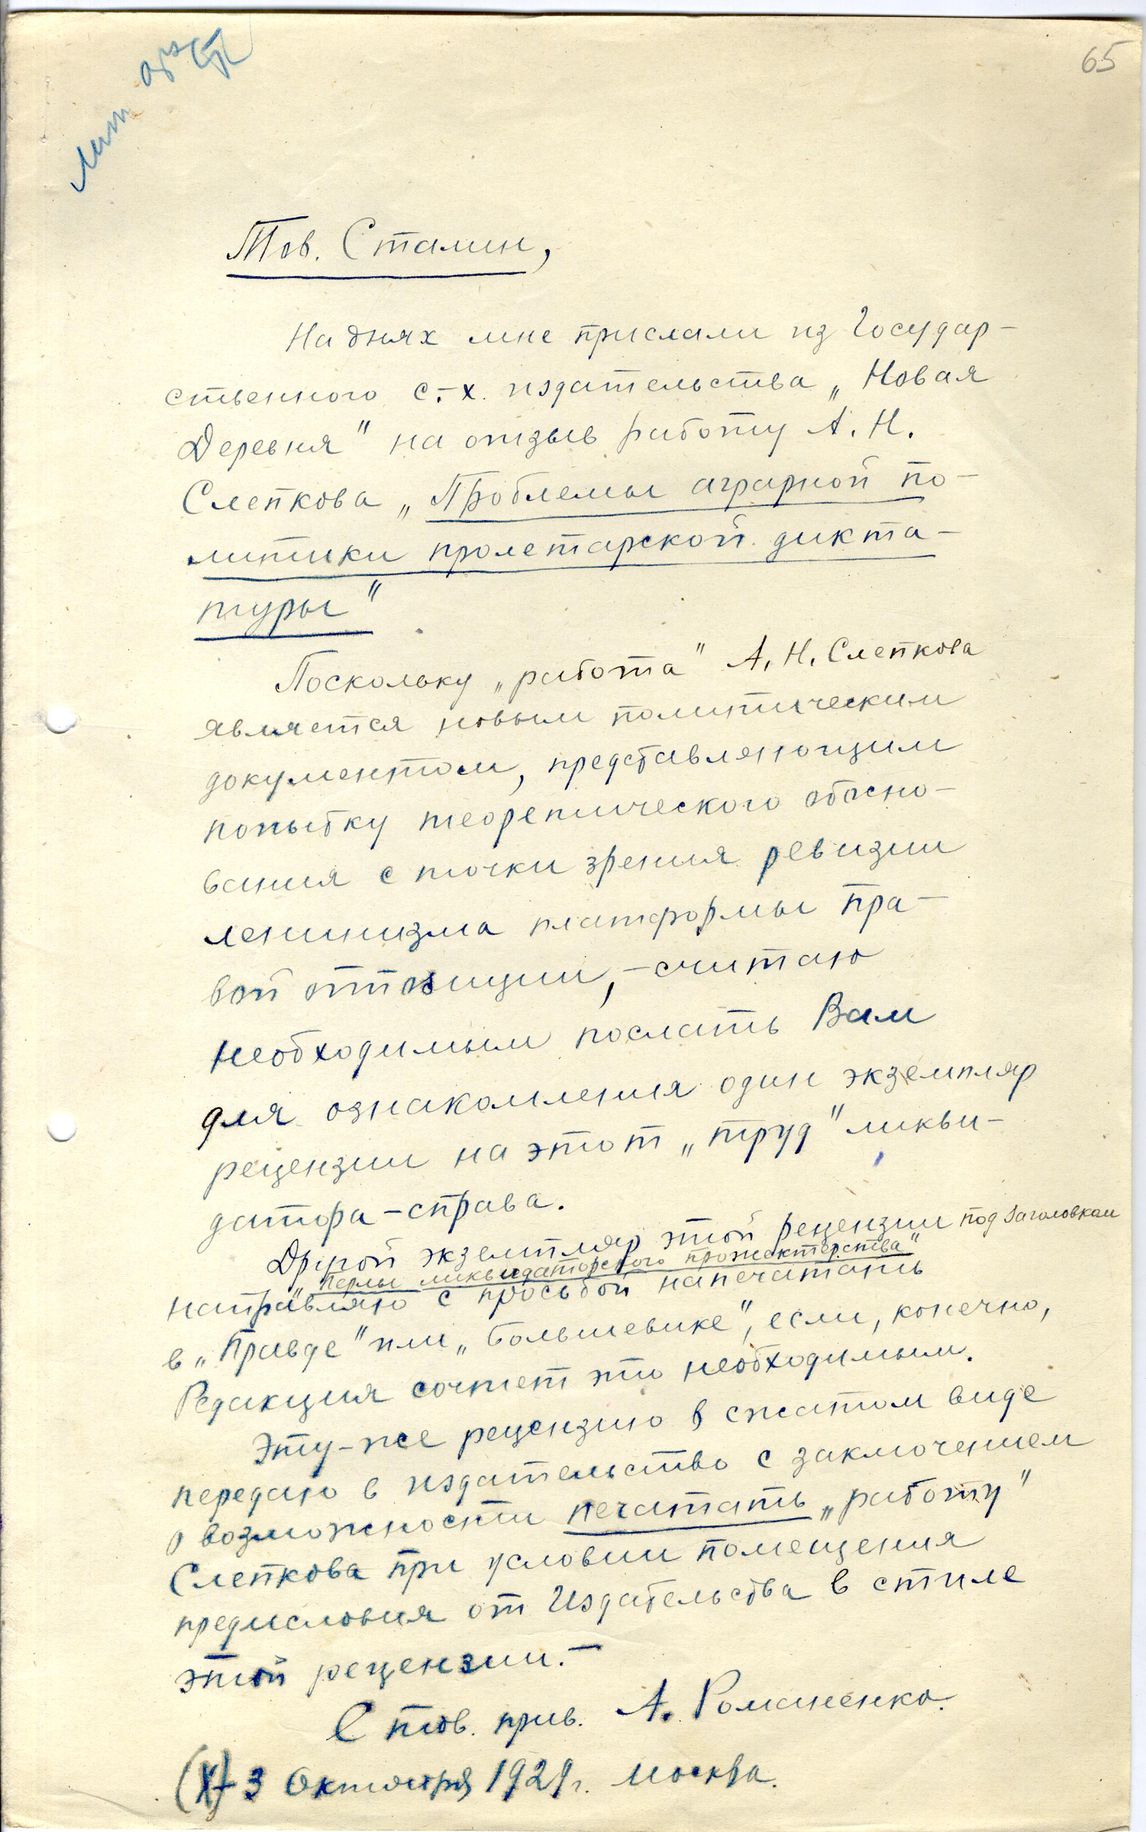 65
Тов. Сталин,
На днях мне прислали из Государ-
ственного с.-х. издательства „Новая
Деревня" на отзыв работу А. Н.
Слепкова „Проблемы аграрной по-
литики пролетарской дикта-
туры"
Поскольку „работа" А. Н. Слепкова
является новым политическим
документом, представляющим
попытку теоретического обосно-
вания с точки зрения ревизии
ленинизма платформы пра-
вой оппозиции, - считаю
необходимым послать Вам
для ознакомления один экземпляр
рецензии на этот „труд" ликви-
датора-справа.
Другой экземпляр этой рецензии под заголовком
„Перлы ликвидаторского прожектерства"
направляю с просьбой напечатать
в „Правде" или „Большевике", если, конечно,
Редакция сочтет это необходимым.
Эту-же рецензию в сжатом виде
передаю в издательство с заключением
о возможности печатать „работу"
Слепкова при условии помещения
предисловия от Издательства в стиле
этой рецензии. -
С тов. прив. А. Романенко.
(X) 3 Октября 1929 г. Москва.